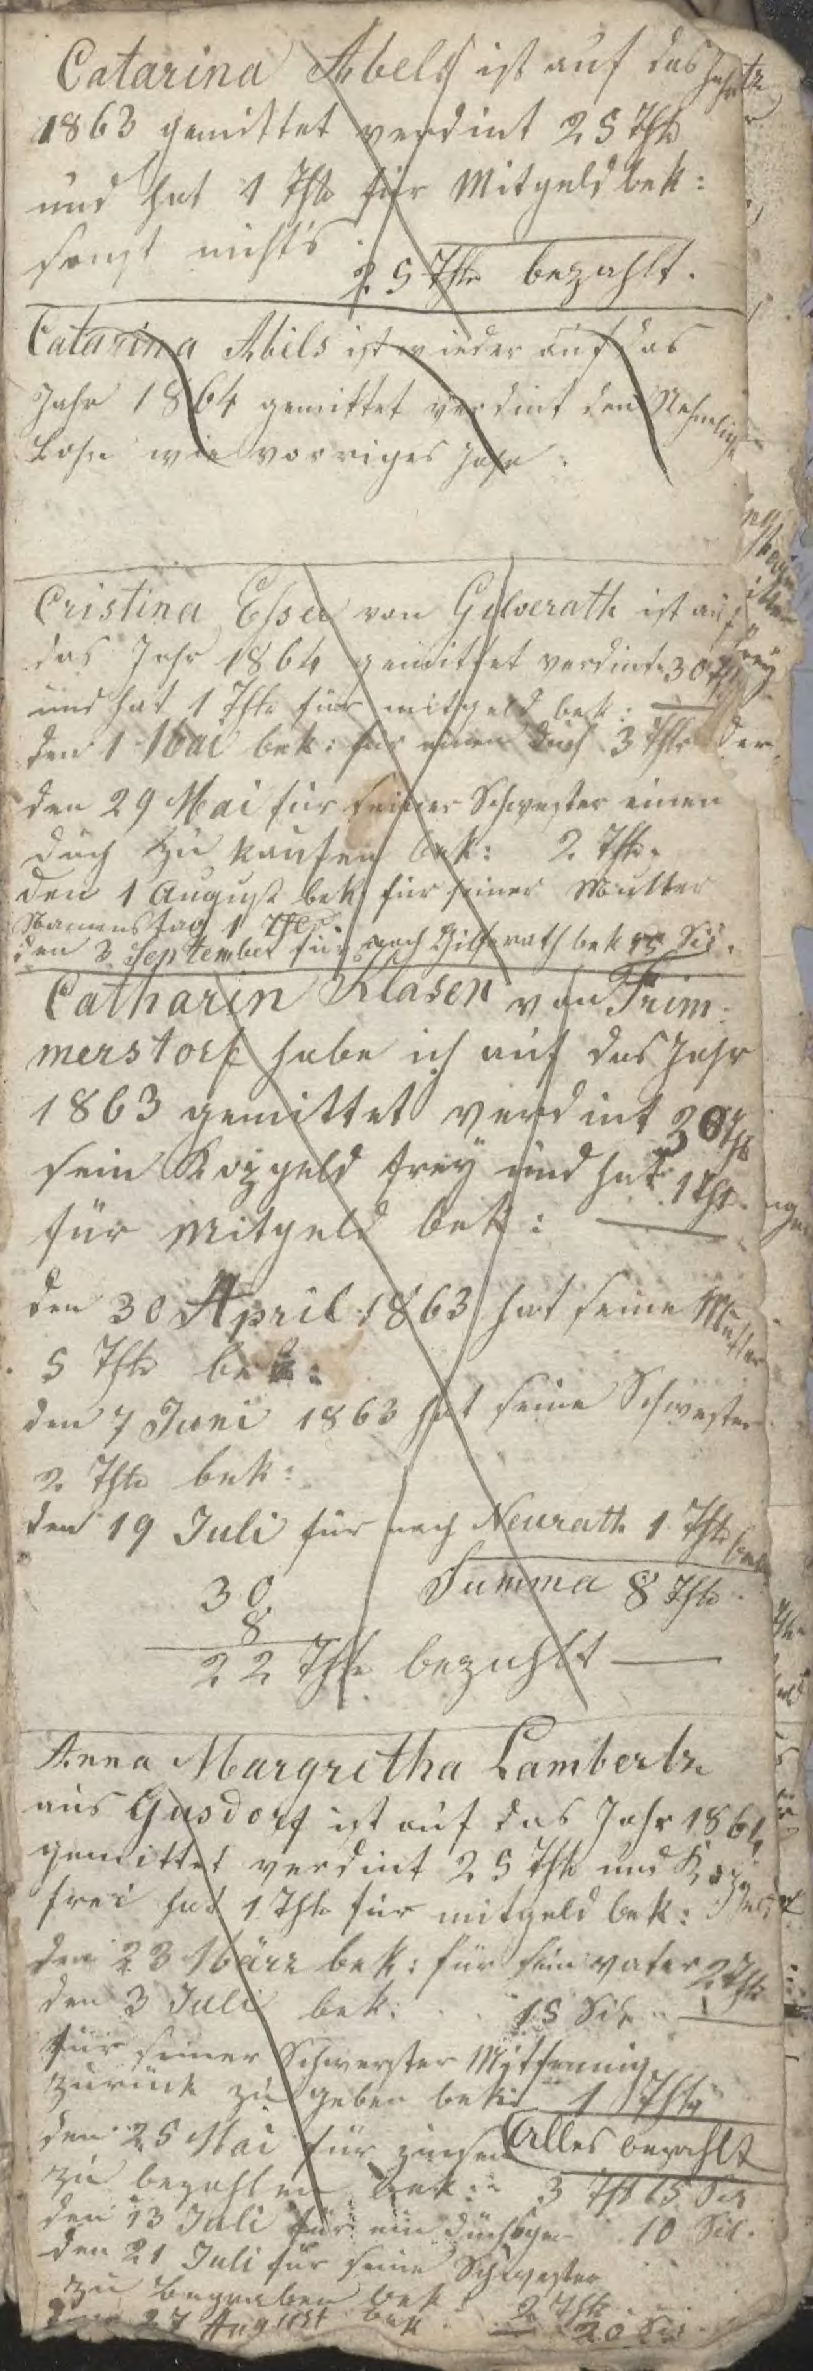 Catarina Abels ist auf das Jahr
1863 gemittet verdint 25 Thlr
und hat 1 Thlr für Mitgeld bek:
sonst nichts.
25 Thlr bezahlt.
Catarina Abels ist wieder auf das
Jahr 1864 gemittet verdint den Nehmlichen
Lohn wie vorriges Jahr.
Cristina Esser von Gilverath ist auf
das Jahr 1864 gemittet verdint 30 Thlr
und hat 1 Thlr für mitgeld bek:
den 1 Mai bek: für einen duch 3 Thlr
den 29 Mai für seiner Schwester einen
duch zu kaufen bek: 2 Thlr.
den 1 August bek für seiner Mutter
Namenstag 1 Thlr.
den 3 September für nach Gilverath bek 15 Sil.
Catharin Klasen von Frim-
merstorf habe ich auf das Jahr
1863 gemittet verdint 30 Thlr
sein Kopgeld frey und hat 1 Thlr
für Mitgeld bek:
den 30 April 1863 hat seine Mutter
5 Thlr bek:
den 7 Juni 1863 hat seine Schwester
2 Thlr bek:
den 19 Juli für nach Neurath 1 Thlr bek
Summa 8 Thlr.
30
8
22 Thlr bezahlt
Anna Margretha Lambertz
aus Gusdorf ist auf das Jahr 1864
gemittet verdint 25 Thlr und Kopgeld
frei hat 1 Thlr für mitgeld bek:
den 23 März bek: für sein vater 2 Thlr
den 3 Juli bek: 15 Sil
für seiner Schwerster Mitfennig
zurück zu geben bek: 1 Thlr
den 25 Mai für zinsen
Alles bezahlt
zu bezahlen bek: 3 Thl 15 Sil
den 13 Juli für ein düchsgen 10 Sil.
den 21 Juli für seine Schwester
zu begraben bek 2 Thlr
den 27 August bek 20 Sil